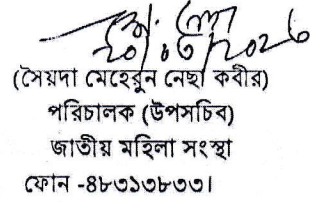 ২০/০৩/২০২৬
(সৈয়দা মেহেরুন নেছা কবীর)
পরিচালক (উপসচিব)
জাতীয় মহিলা সংস্থা
ফোন -৪৮৩১৩৮৩৩।